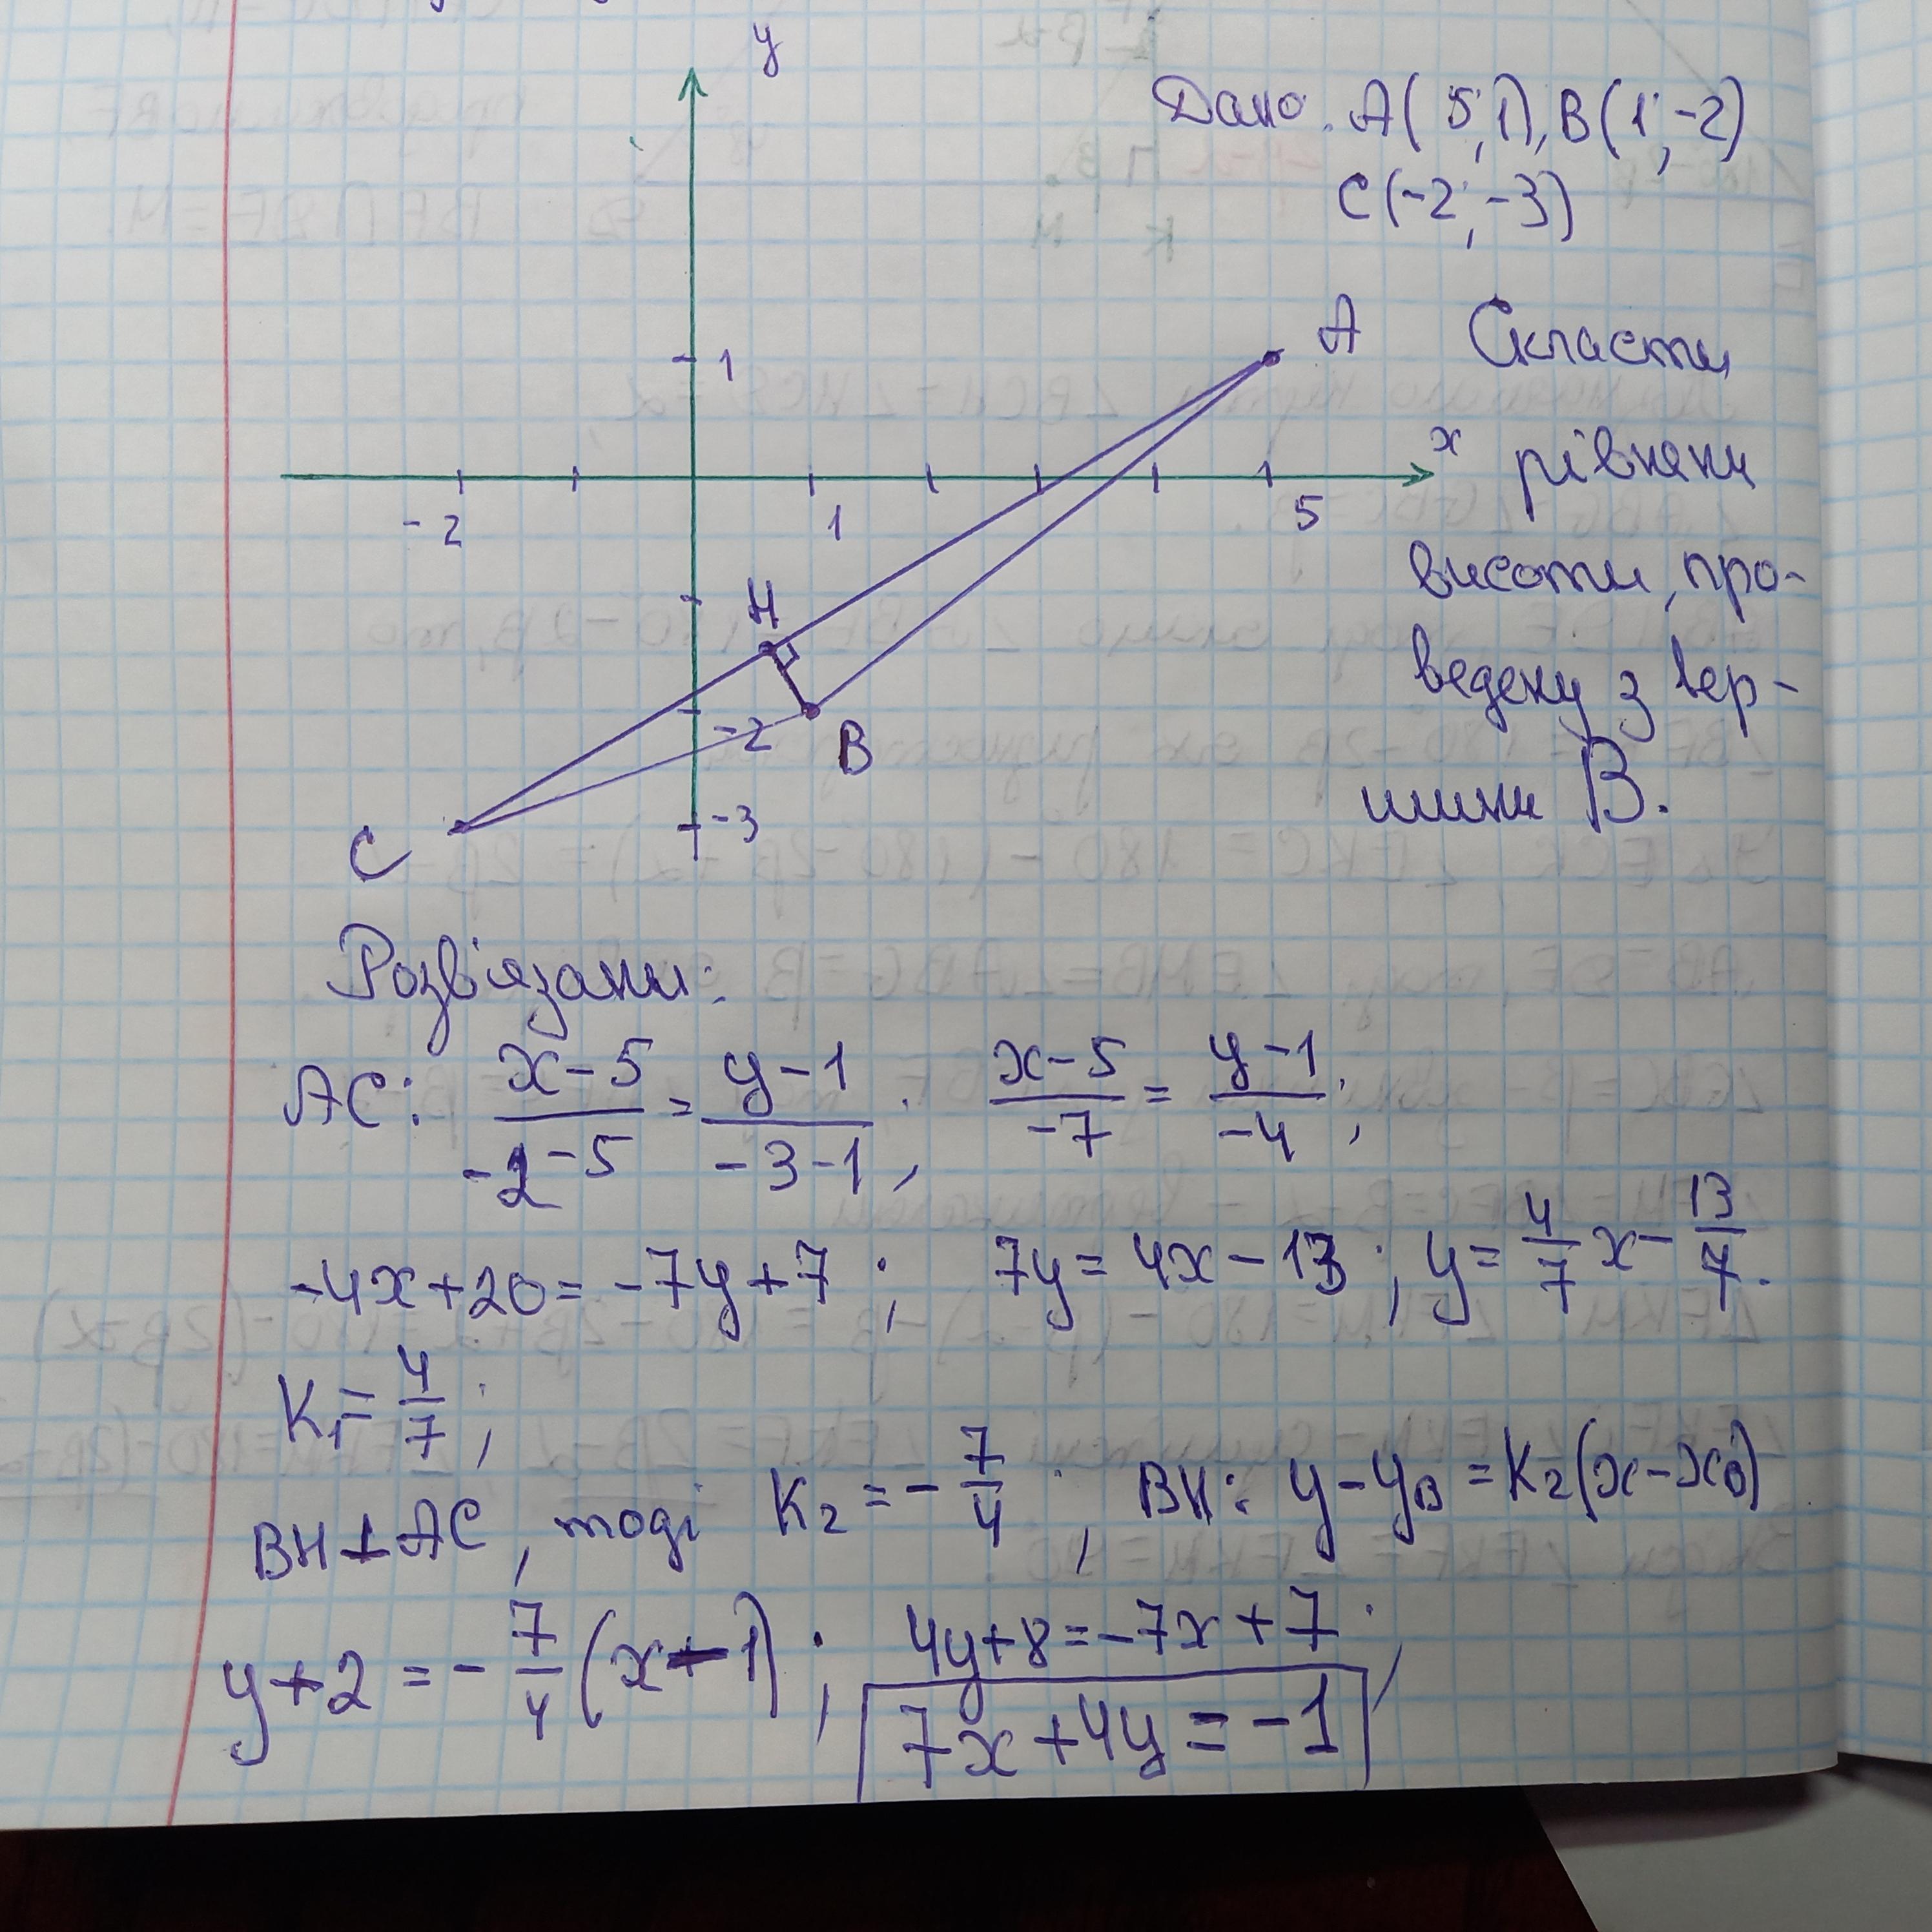 y
Дано: A(5;1), B(1;-2)
C(-2;-3)
A
1
Скласти
x
рівняння
-2
1
5
висоти, про-
H
ведену з вер-
-2
B
шини B.
-3
C
Розв'язання:
AC: (x-5)/(-2-5) = (y-1)/(-3-1); (x-5)/(-7) = (y-1)/(-4);
-4x+20=-7y+7; 7y=4x-13; y=4/7 x - 13/7.
K₁=4/7;
BH⊥AC, тоді K₂=-7/4; BH: y-y_B=K₂(x-x_B)
y+2=-7/4(x-1); 4y+8=-7x+7;
7x+4y=-1